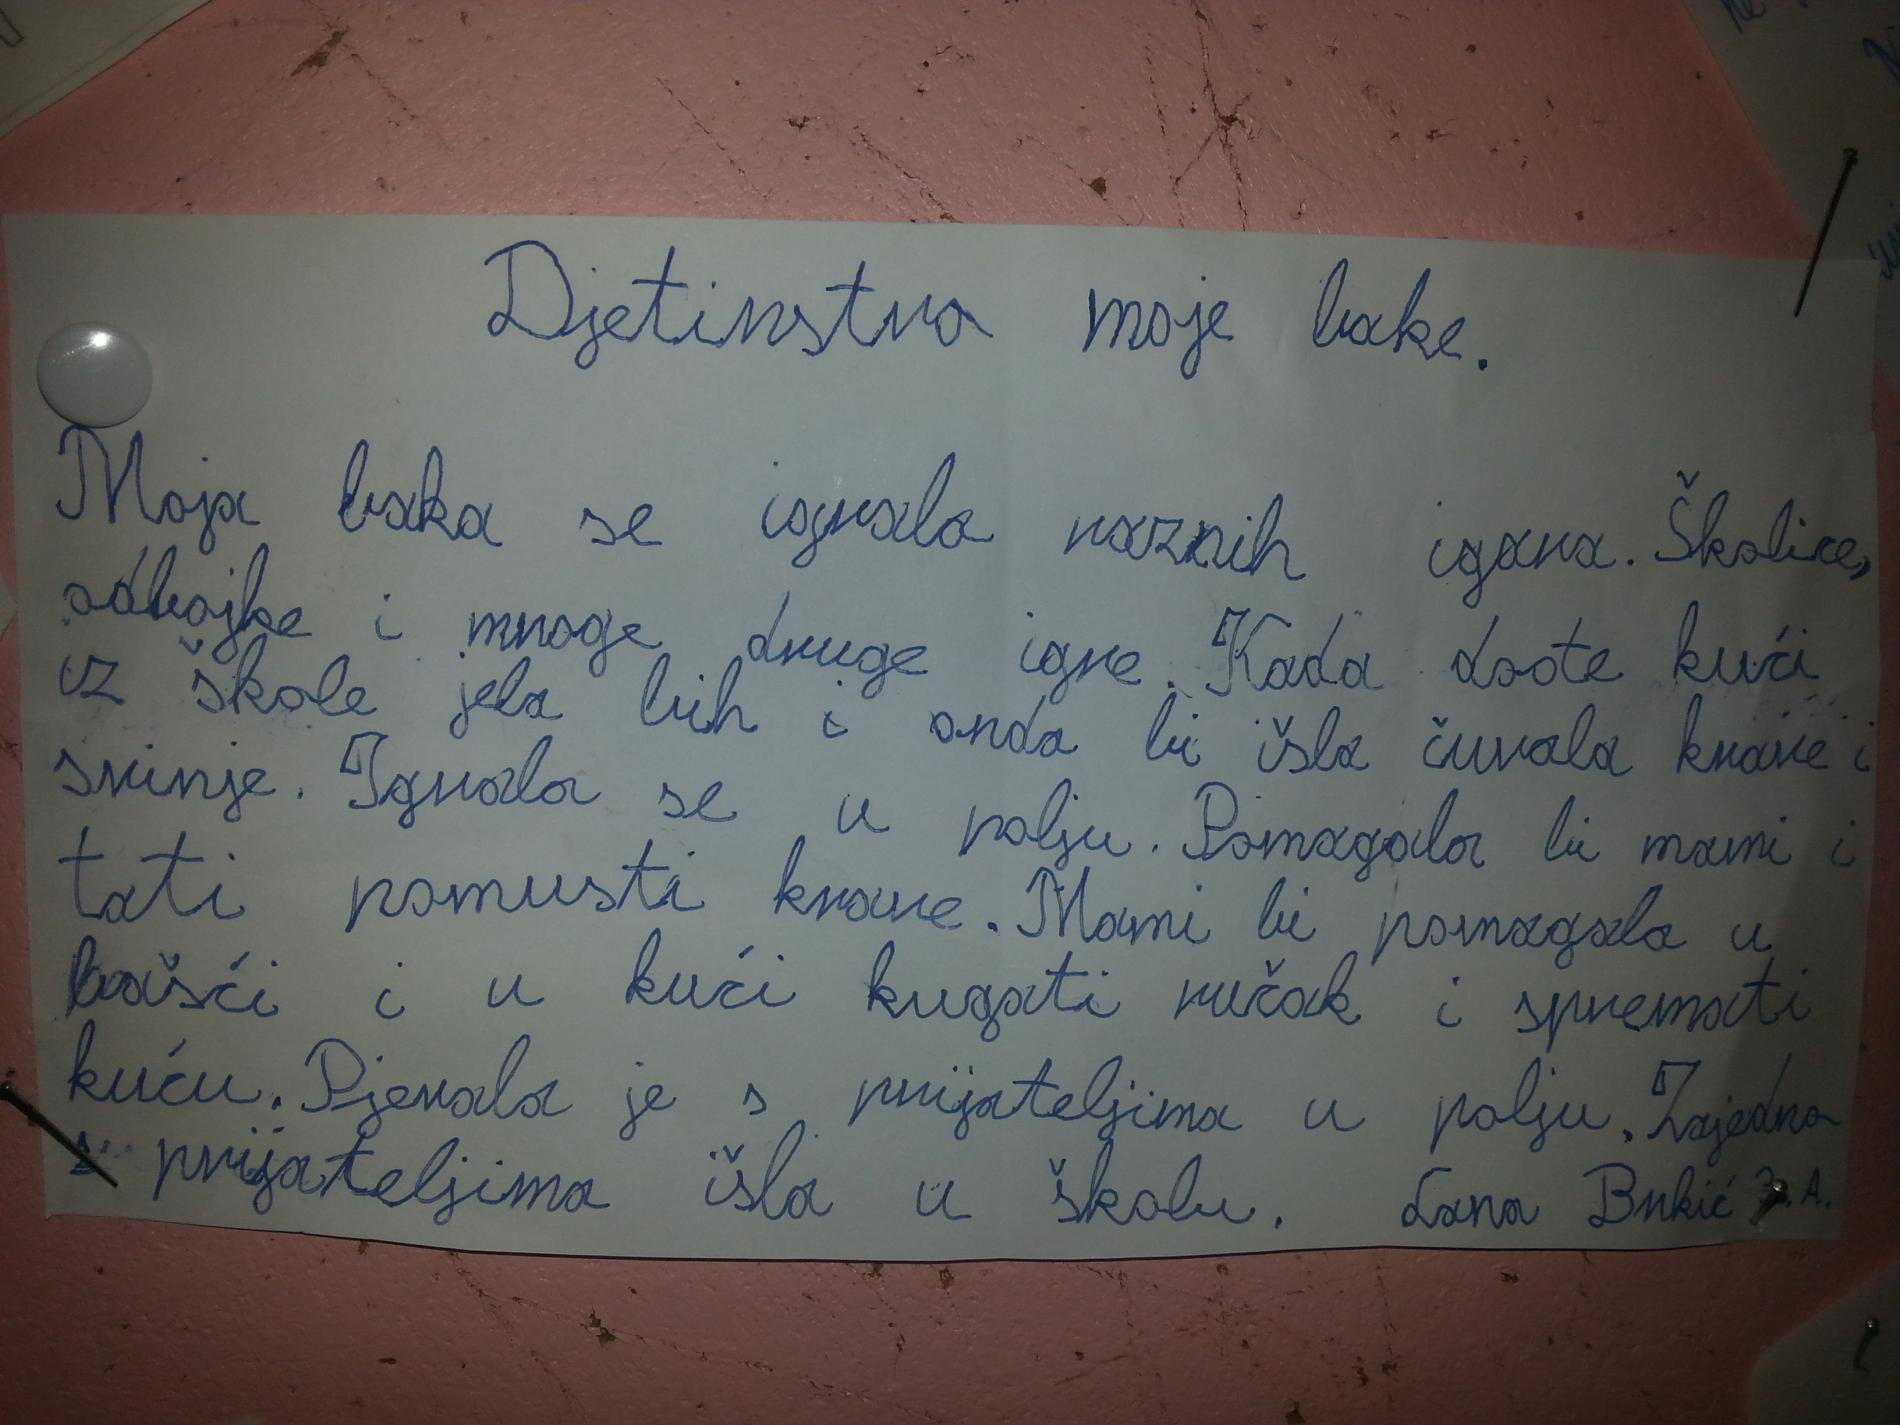 Djetinstvo moje bake.
Moja baka se igrala raznih igara. Školice,
odbojke i mnoge druge igre. Kada dođe kući
iz škole jela bih i onda bi išla čuvala krave i
svinje. Igrala se u polju. Pomagala bi mami i
tati pomusti krave. Mami bi pomagala u
bašći i u kući kugati ručak i spremati
kuću. Pjevala je s prijateljima u polju. Zajedno
s prijateljima išla u školu. Lana Brkić